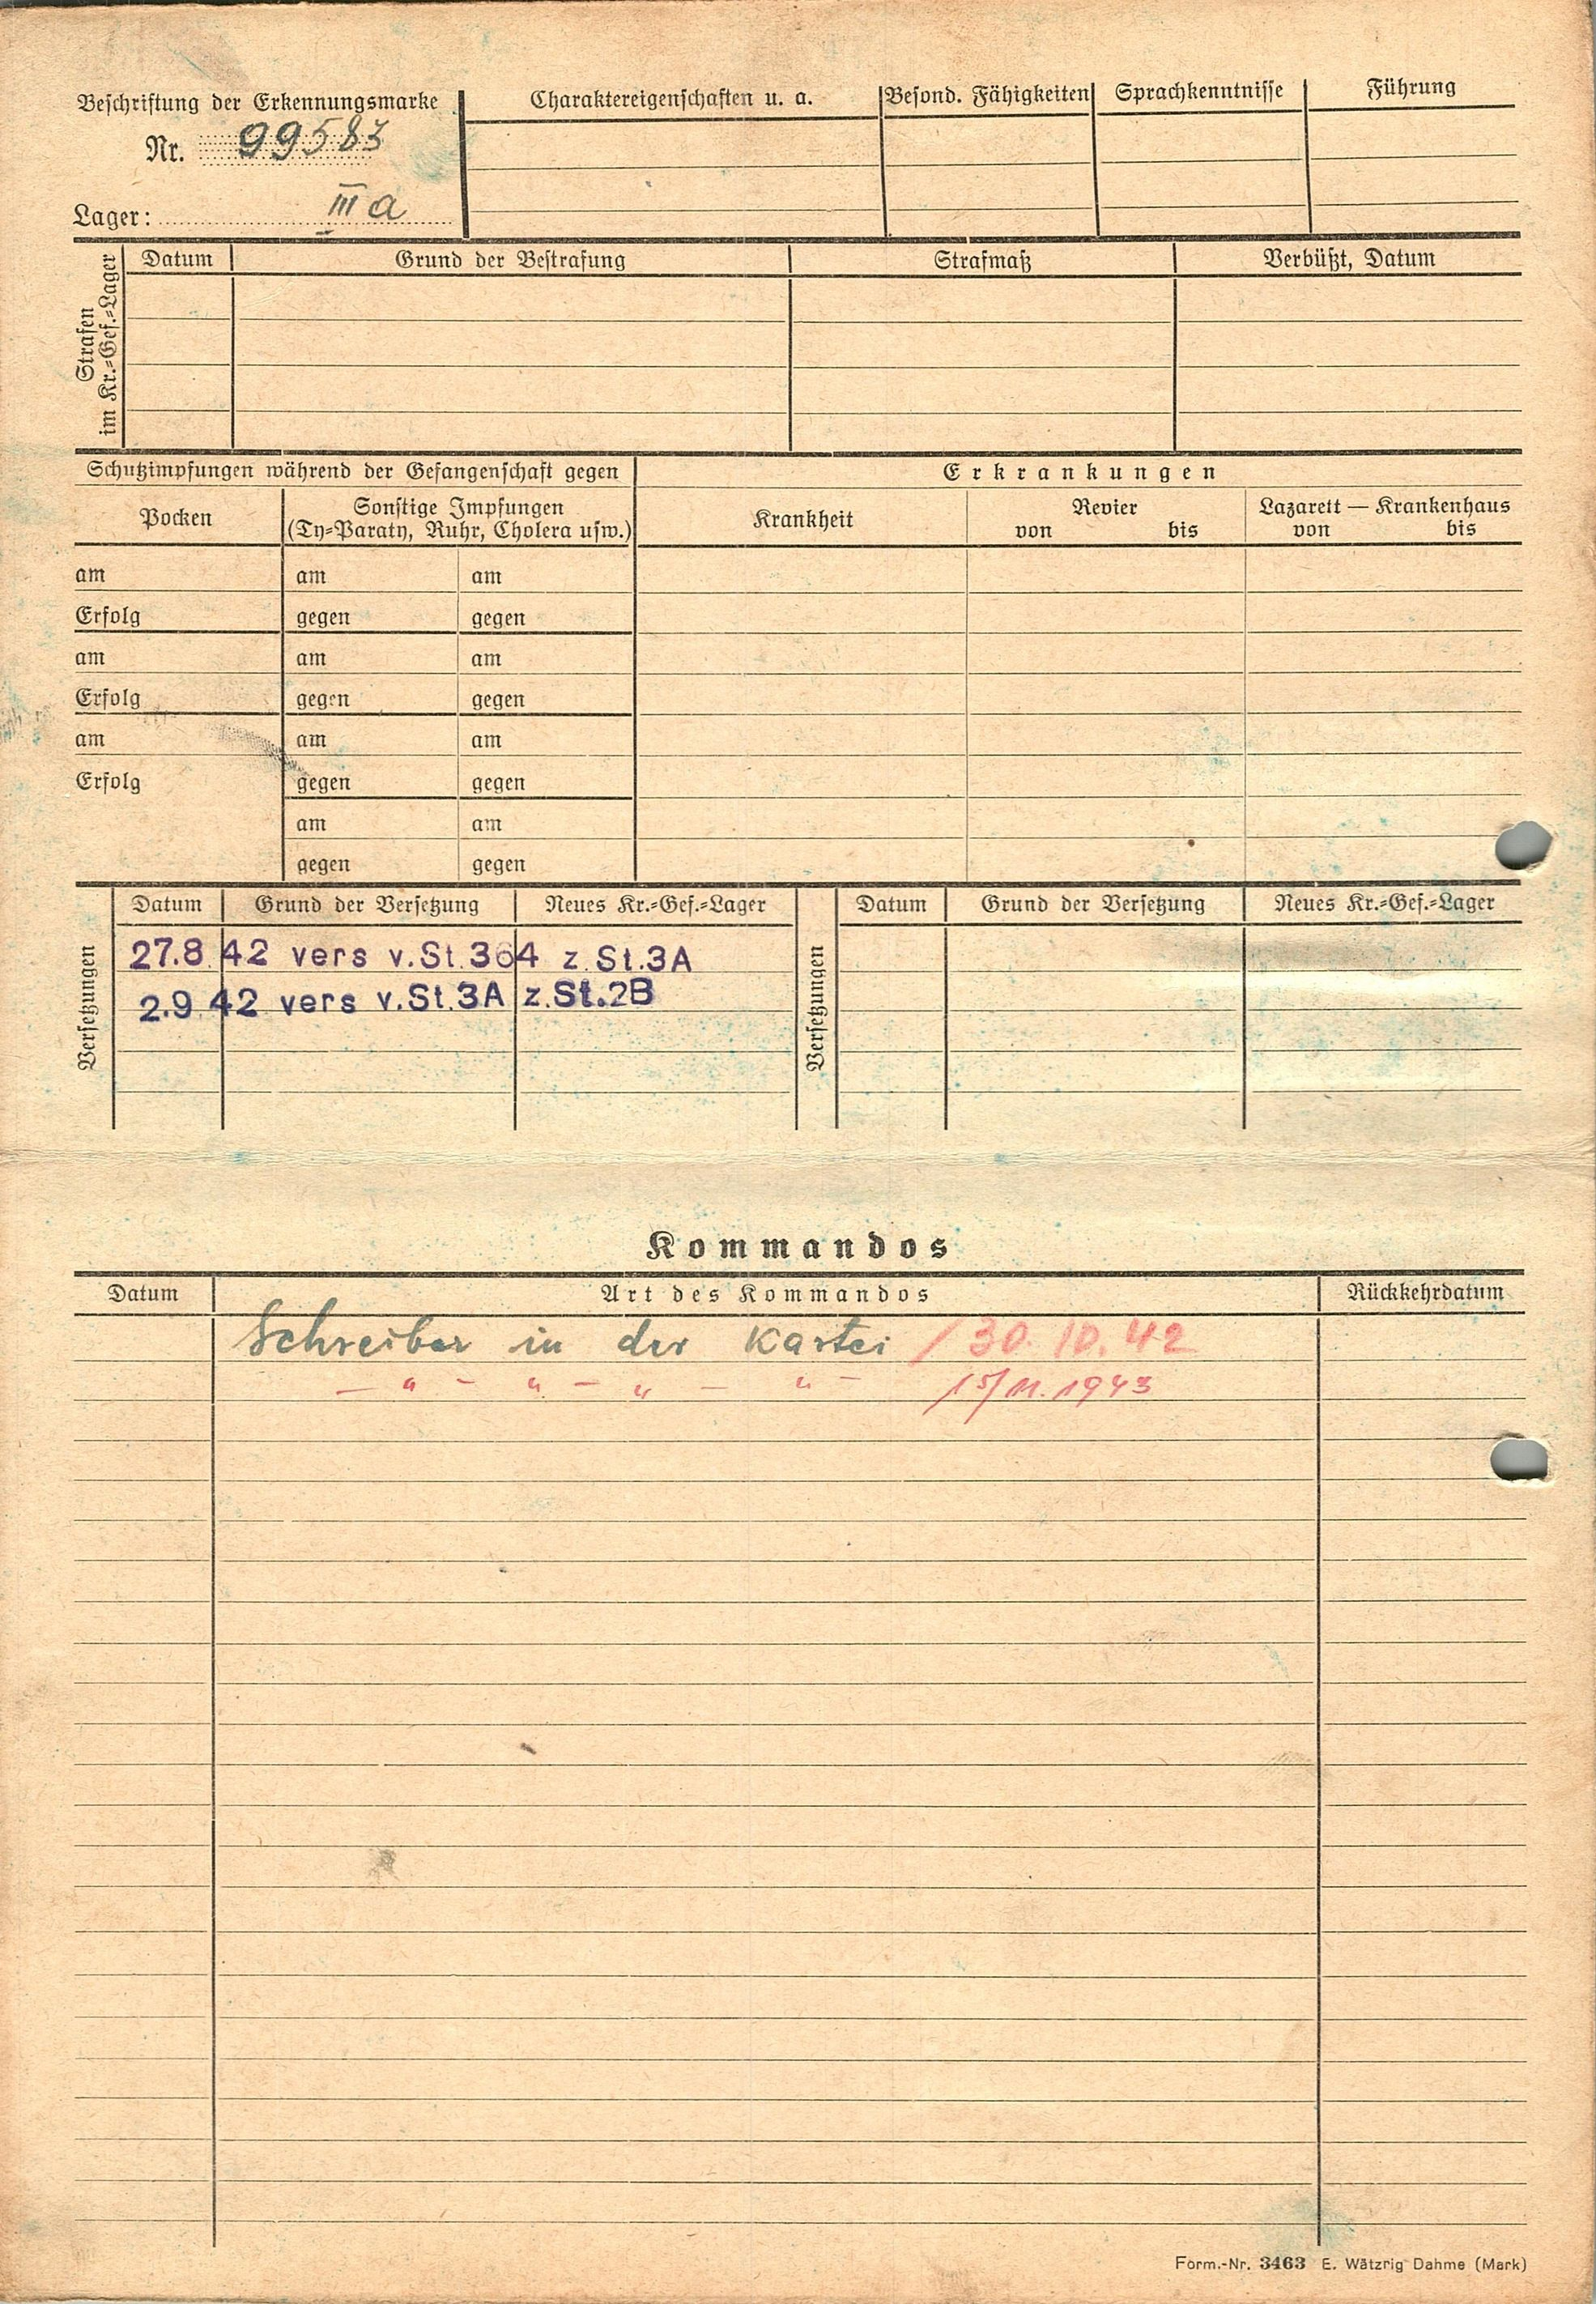 Beschriftung der Erkennungsmarke
Nr. 99583
Lager: III a
Charaktereigenschaften u. a. Besond. Fähigkeiten Sprachkenntnisse Führung
Strafen
im Kr.=Gef.=Lager
Datum Grund der Bestrafung Strafmaß Verbüßt, Datum
Schutzimpfungen während der Gefangenschaft gegen Erkrankungen
Pocken
Sonstige Impfungen
(Ty=Paraty, Ruhr, Cholera usw.)
Krankheit
Revier
von bis
Lazarett — Krankenhaus
von bis
am am am
Erfolg gegen gegen
am am am
Erfolg gegen gegen
am am am
Erfolg gegen gegen
am am
gegen gegen
Versetzungen
Datum Grund der Versetzung Neues Kr.=Gef.=Lager
27.8.42 vers v.St.364 z.St.3A
2.9.42 vers v.St.3A z.St.2B
Versetzungen
Datum Grund der Versetzung Neues Kr.=Gef.=Lager
Kommandos
Datum Art des Kommandos Rückkehrdatum
Schreiber in der Kartei / 30.10.42
— " — " — " — " — 15/11.1943
Form.-Nr. 3463 E. Wätzrig Dahme (Mark)